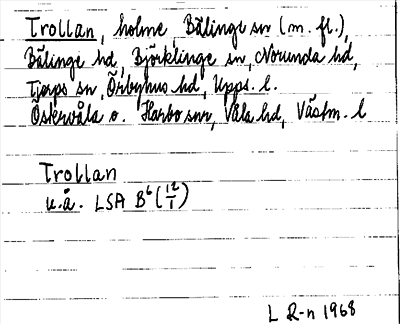 Trollan, holme, Bälinge sn (m. fl.),
Bälinge hd, Björklinge sn, Norunda hd,
Tierps sn, Örbyhus hd, Upps. l.
Östervåla o. Harbo snr, Våla hd, Västm. l
Trollan
u.å. LSA B6 (12/1)
L R-n 1968